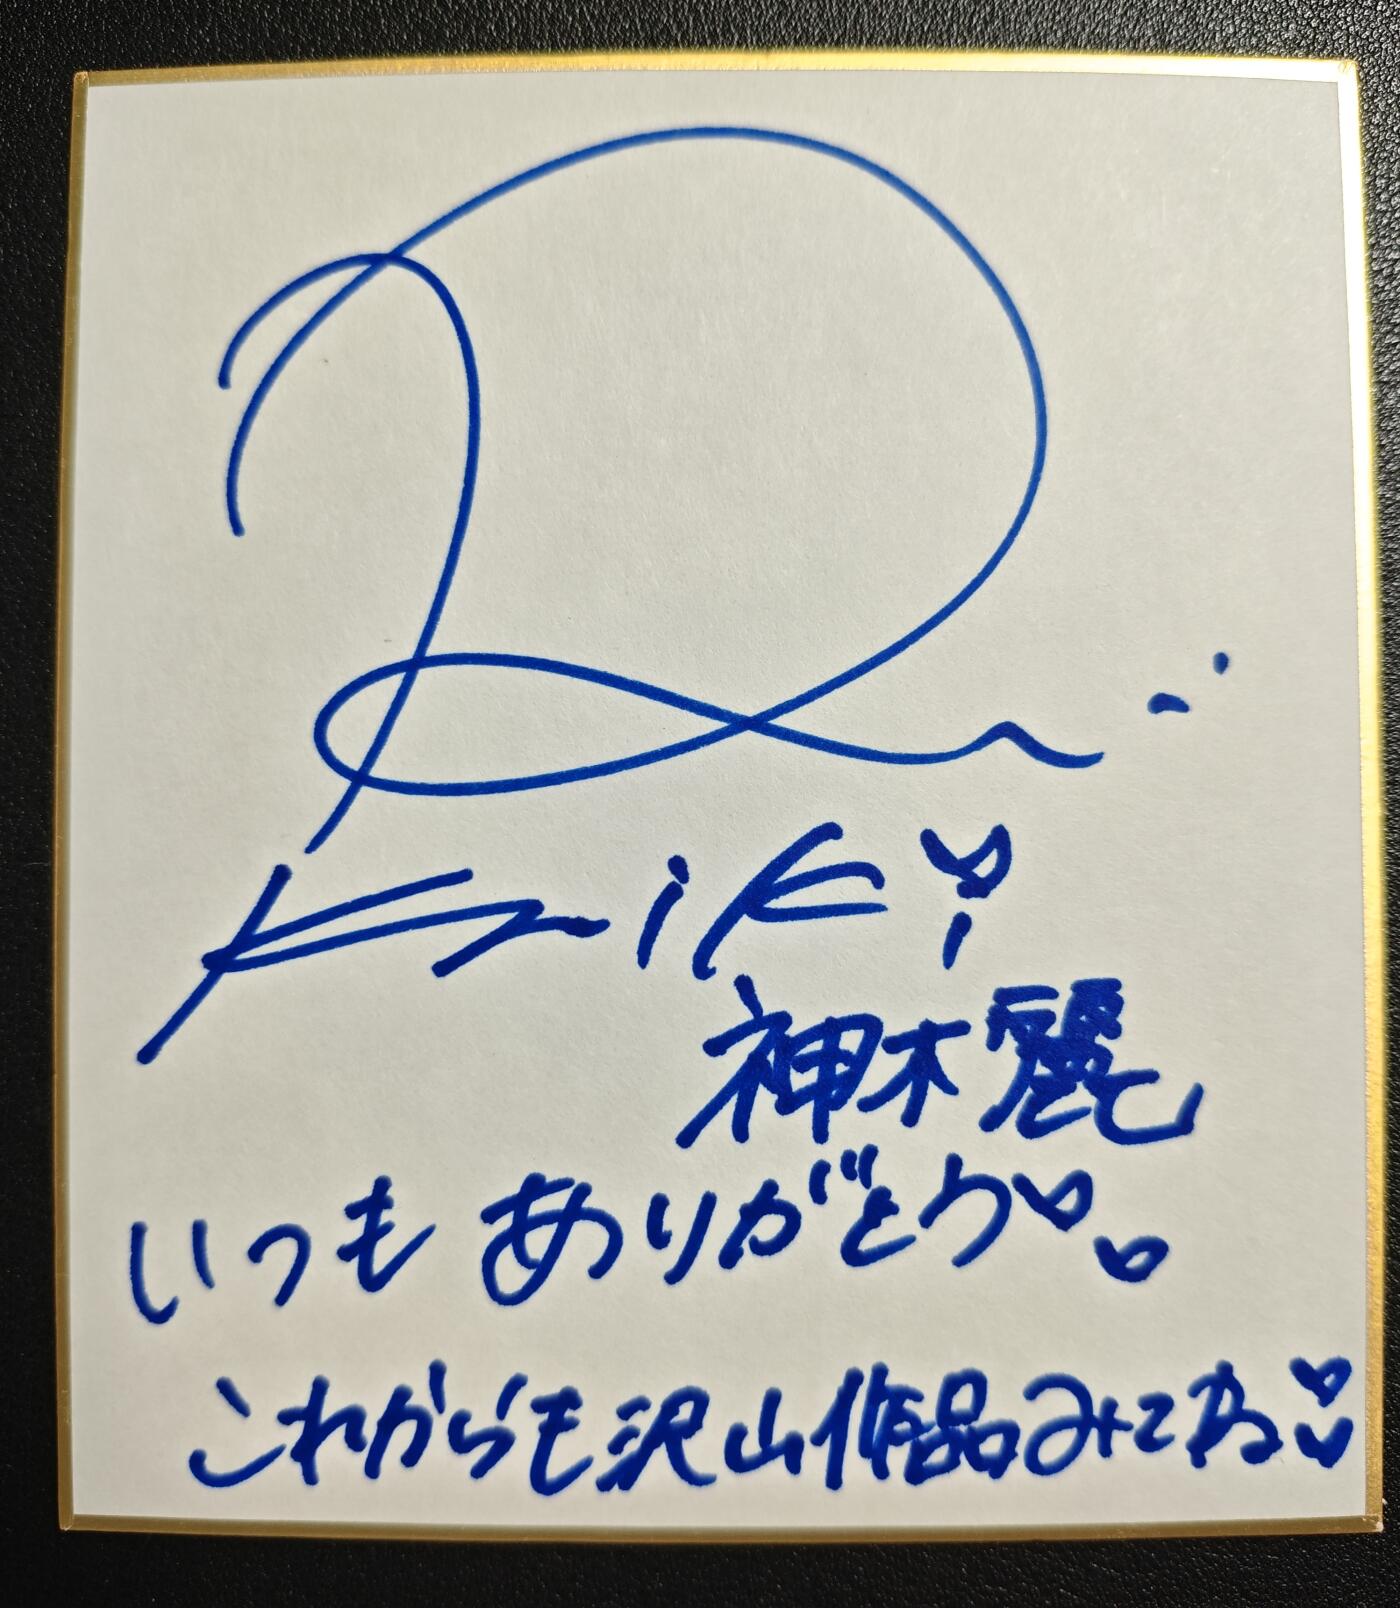 Rei
KamiKi
神木麗
いつもありがとう♡♡
これからも沢山作品みてね♡♡